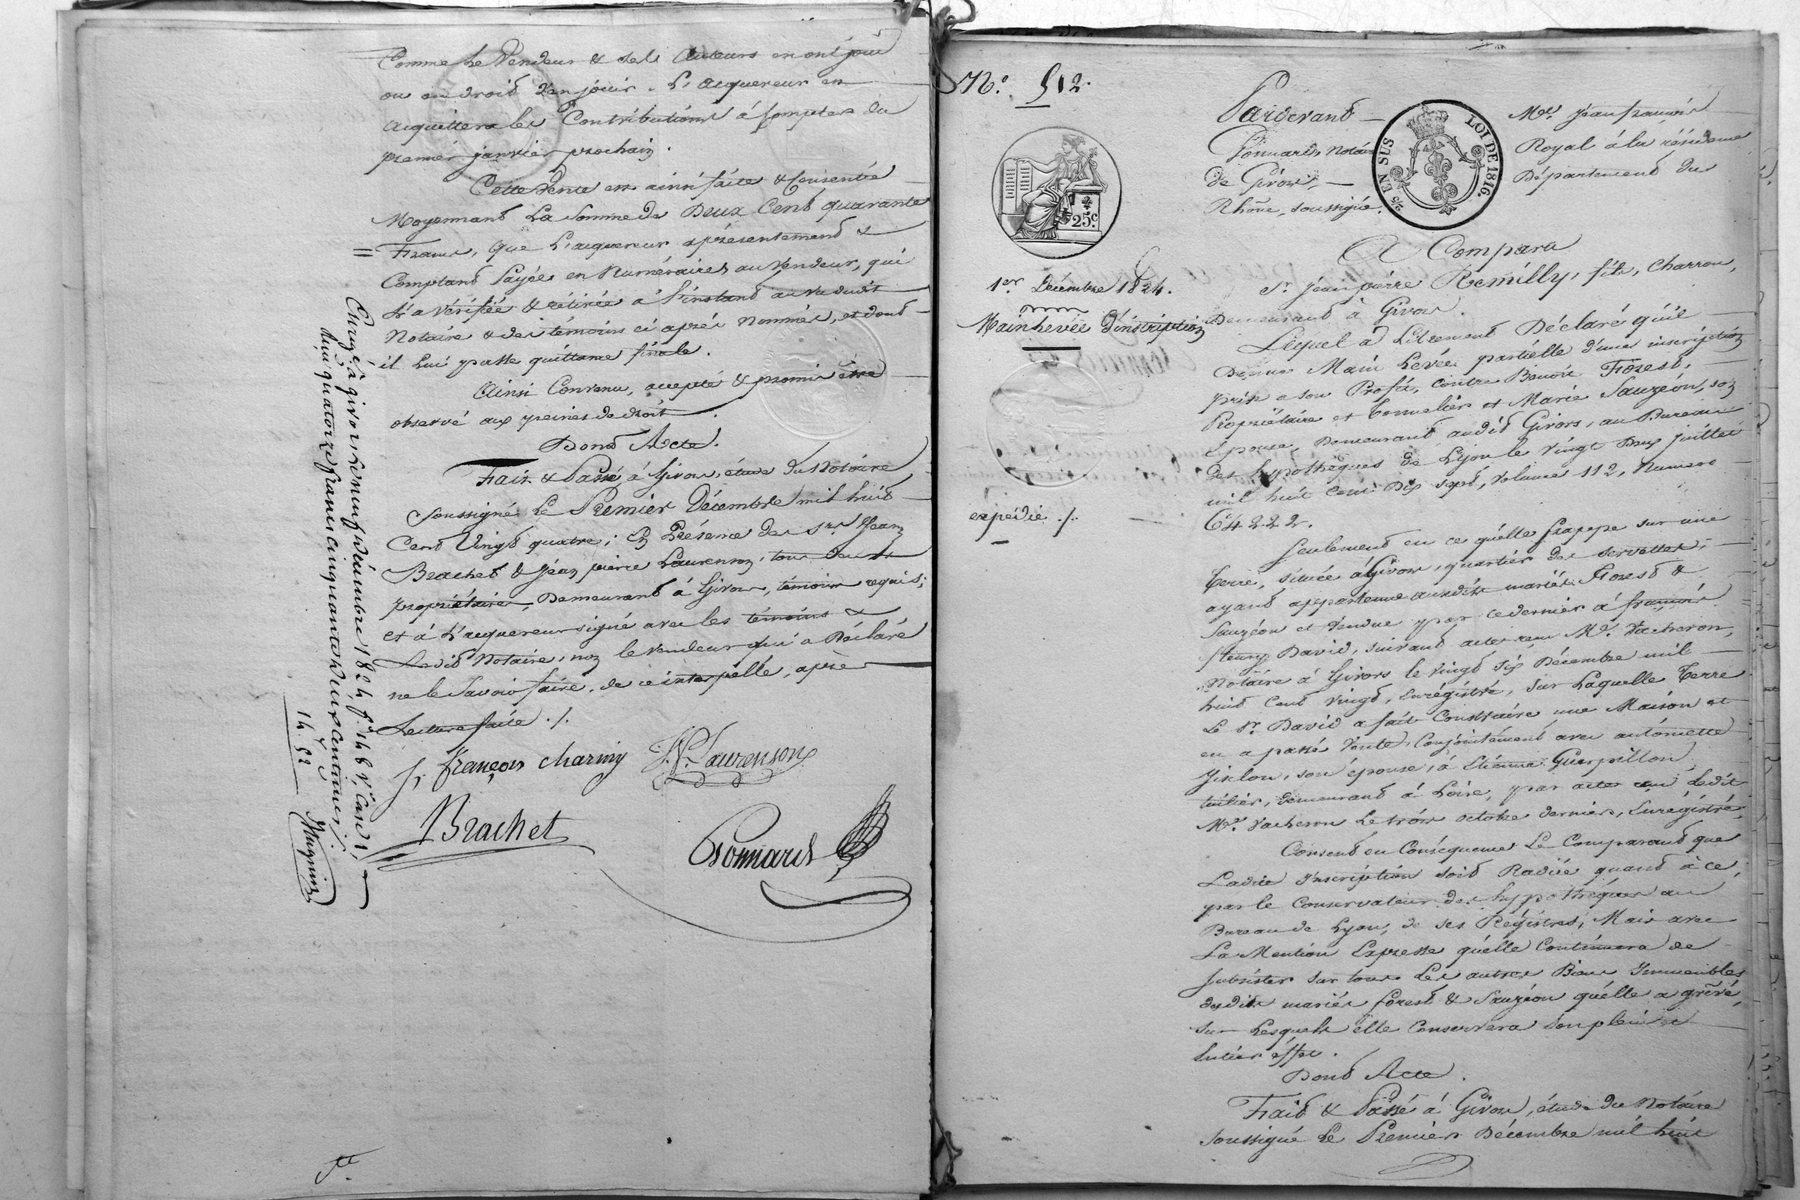 Comme le Vendeur & ses Auteurs en ont joui
ou eu droit d'en jouir. L'acquereur en
acquittera les Contributions à compter du
premier janvier prochain.
Cette vente est ainsi faite & Consentie
Moyennant La Somme de Deux Cent quarante
Francs, que L'acquereur a présentement &
Comptant Payée en Numéraires au vendeur, qui
l'a Vérifiée & retirée à l'instant au vu dudit
Notaire & des témoins ci après nommés, et dont
il lui passe quittance finale.
Ainsi Convenu, accepté & promis être
observé aux peines de droit.
Dont Acte.
Fait & Passé à Givors, étude du Notaire
Soussigné Le Premier Décembre mil huit
Cent Vingt quatre; En Présence des Srs. Jean
Brachet & Jean pierre Laurenson, tous deux
propriétaires, Demeurant à Givors, témoins requis;
et à L'acquereur signé avec les témoins &
Ledit Notaire, non le vendeur qui a Déclaré
ne le Savoir faire, de ce interpellé, après
Lecture faite ./.
françois charmy J.P. Laurenson
Brachet
Ponnard
Enregé à givors le neuf décembre 1824 fo 148 Vo Case 1,
reçu quatorze francs cinquante deux centimes
14 52
N.o 512.
Pardevant Me. Jean françois
Ponnard, Notaire Royal à la résidence
de Givors, Département du
Rhône, soussigné.
2/5 EN SUS LOI DE 1816.
25c
A Comparu
Sr. Jean pierre Remilly, fils, Charron,
Demeurant à Givors.
1er. Décembre 1824.
Main Levée D'inscription
expédié ./.
Lequel a Librement Déclaré qu'il
Donne Main Levée partielle d'une inscription
prise a son Profit, contre Benoit Forest,
Propriétaire et tonnelier et Marie Sauzéon, son
épouse, Demeurant audit Givors, au Bureau
des hypothèques de Lyon le vingt Deux juillet
mil huit cent Dix sept, Volume 112, Numero
64222.
Seulement en ce qu'elle frappe sur une
terre, située à Givors, quartier des servettes,
ayant appartenue auxdits mariés Forest &
Sauzéon et vendue par ce dernier à françois
fleury David, suivant acte reçu Me. Vacheron,
Notaire à Givors le vingt six Décembre mil
huit Cent vingt, Enrégistré, sur Laquelle terre
Le Sr. David a fait Construire une Maison et
en a passé Vente, Conjointement avec antoinette
son épouse, à Etienne Guerpillon
tuilier, Demeurant à Loire, par acte reçu Ledit
Me. Vacheron Le trois octobre dernier, Enrégistré.
Consent en Conséquence Le Comparant que
Ladite Inscription soit Radiée quand à ce,
par le Conservateur des hypothèques au
Bureau de Lyon, de ses Régistres, Mais avec
La Mention Expresse qu'elle Continuera de
subsister sur tous Les autres Biens Immeubles
desdits mariés forest & Sauzéon qu'elle a grévé,
sur Lesquels elle Conservera son plein &
Entier effet.
Dont Acte.
Fait & Passé à Givors, étude du Notaire
soussigné Le Premier Décembre mil huit